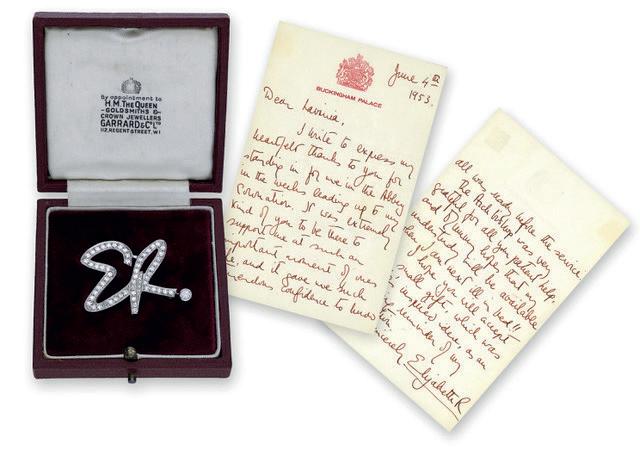 By appointment to
H.M. THE QUEEN
GOLDSMITHS &
CROWN JEWELLERS
GARRARD & Cº Lᵀᴰ
112, REGENT STREET, W1
ER
BUCKINGHAM PALACE
June 4th
1953.
Dear Lavinia,
I write to express my
heartfelt thanks to you for
standing in for me in the Abbey
in the week leading up to my
coronation. It was extremely
kind of you to be there to
support me at such an
important moment of ones
and it gave me such
confidence to know
all was ready before the service
The Archbishop was very
grateful for all your patient help.
and of hopes that my
understudy will be available
day I am ill in bed!!
I hope you will accept
small gift, which was
inspired idea, as an
reminder of my
Elizabeth R